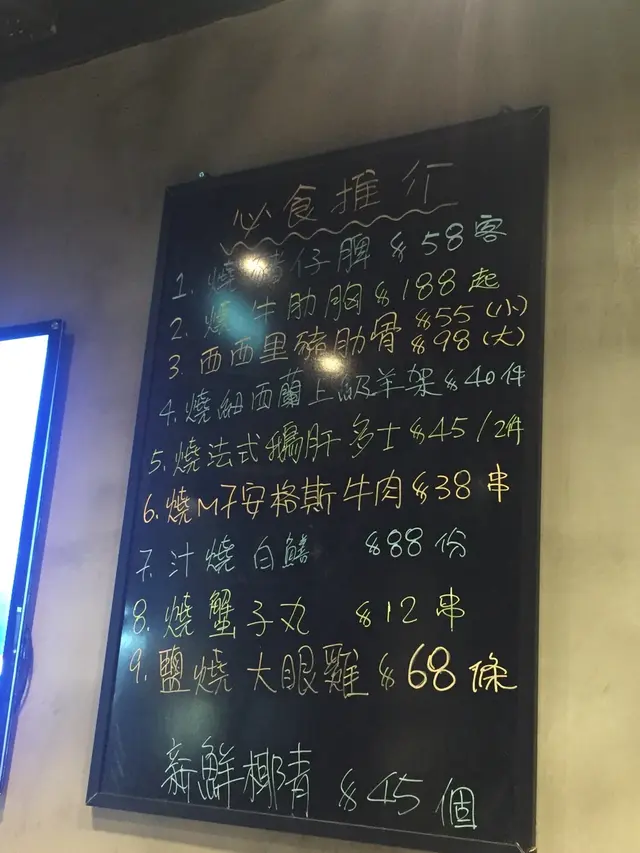 必食推介
1. 燒豬仔脾 $58客
2. 燒牛肋胸 $188起
3. 西西里豬肋骨 $55(小) $98(大)
4. 燒細西蘭上級羊架 $40件
5. 燒法式鵝肝多士 $45/2件
6. 燒M7安格斯牛肉 $38串
7. 汁燒白鱔 $88份
8. 燒蟹子丸 $12串
9. 鹽燒大眼雞 $68條
新鮮椰青 $45個